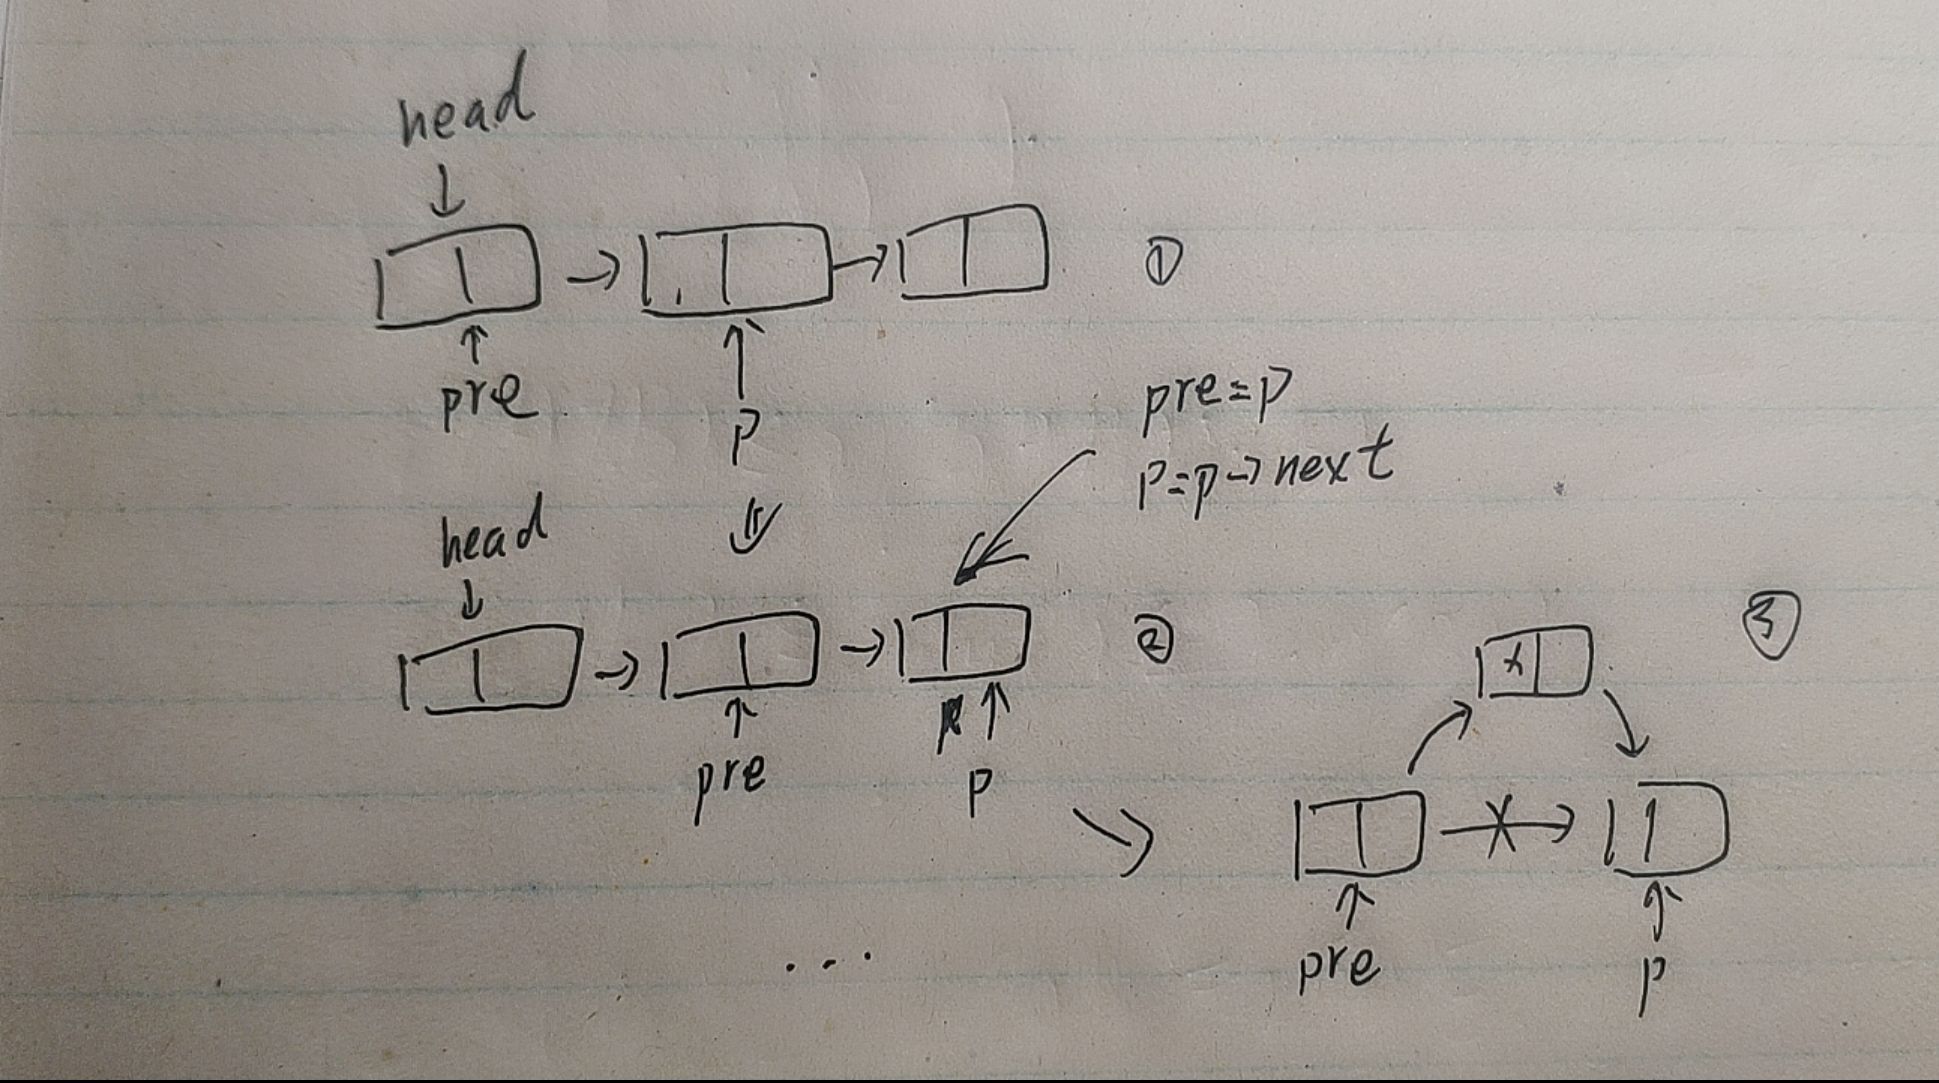 head
①
pre
p
pre=p
p=p→next
head
②
③
x
pre
p
pre
p
...